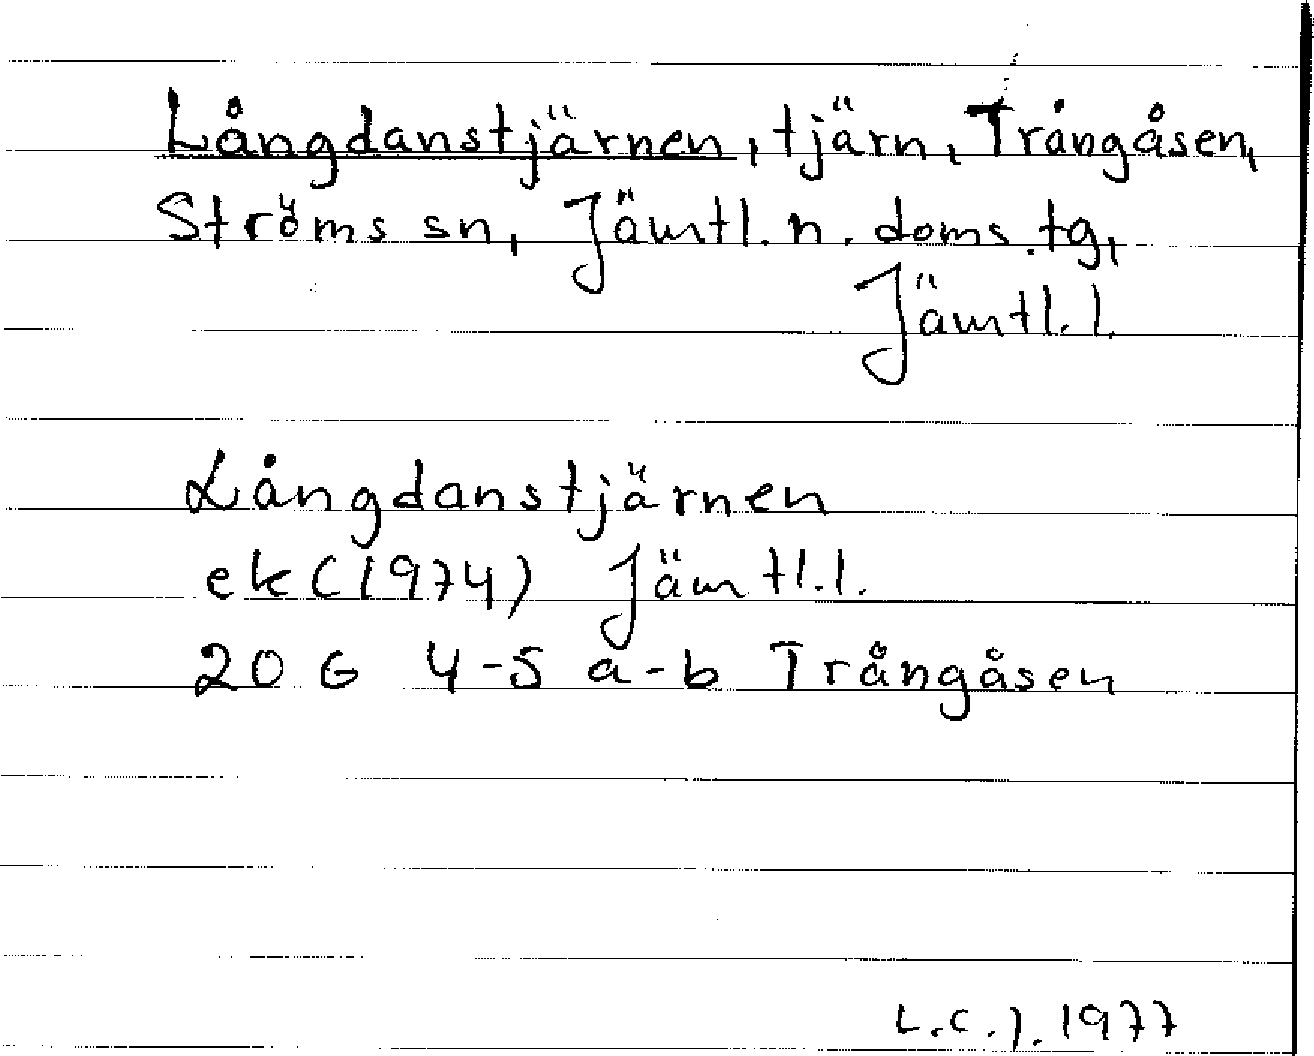 Långdanstjärnen, tjärn, Trångåsen,
Ströms sn, Jämtl. n. doms.tg,
Jämtl. l.
Långdanstjärnen
ek (1974) Jämtl. l.
20 G 4-5 a-b Trångåsen
L.C.J. 1977